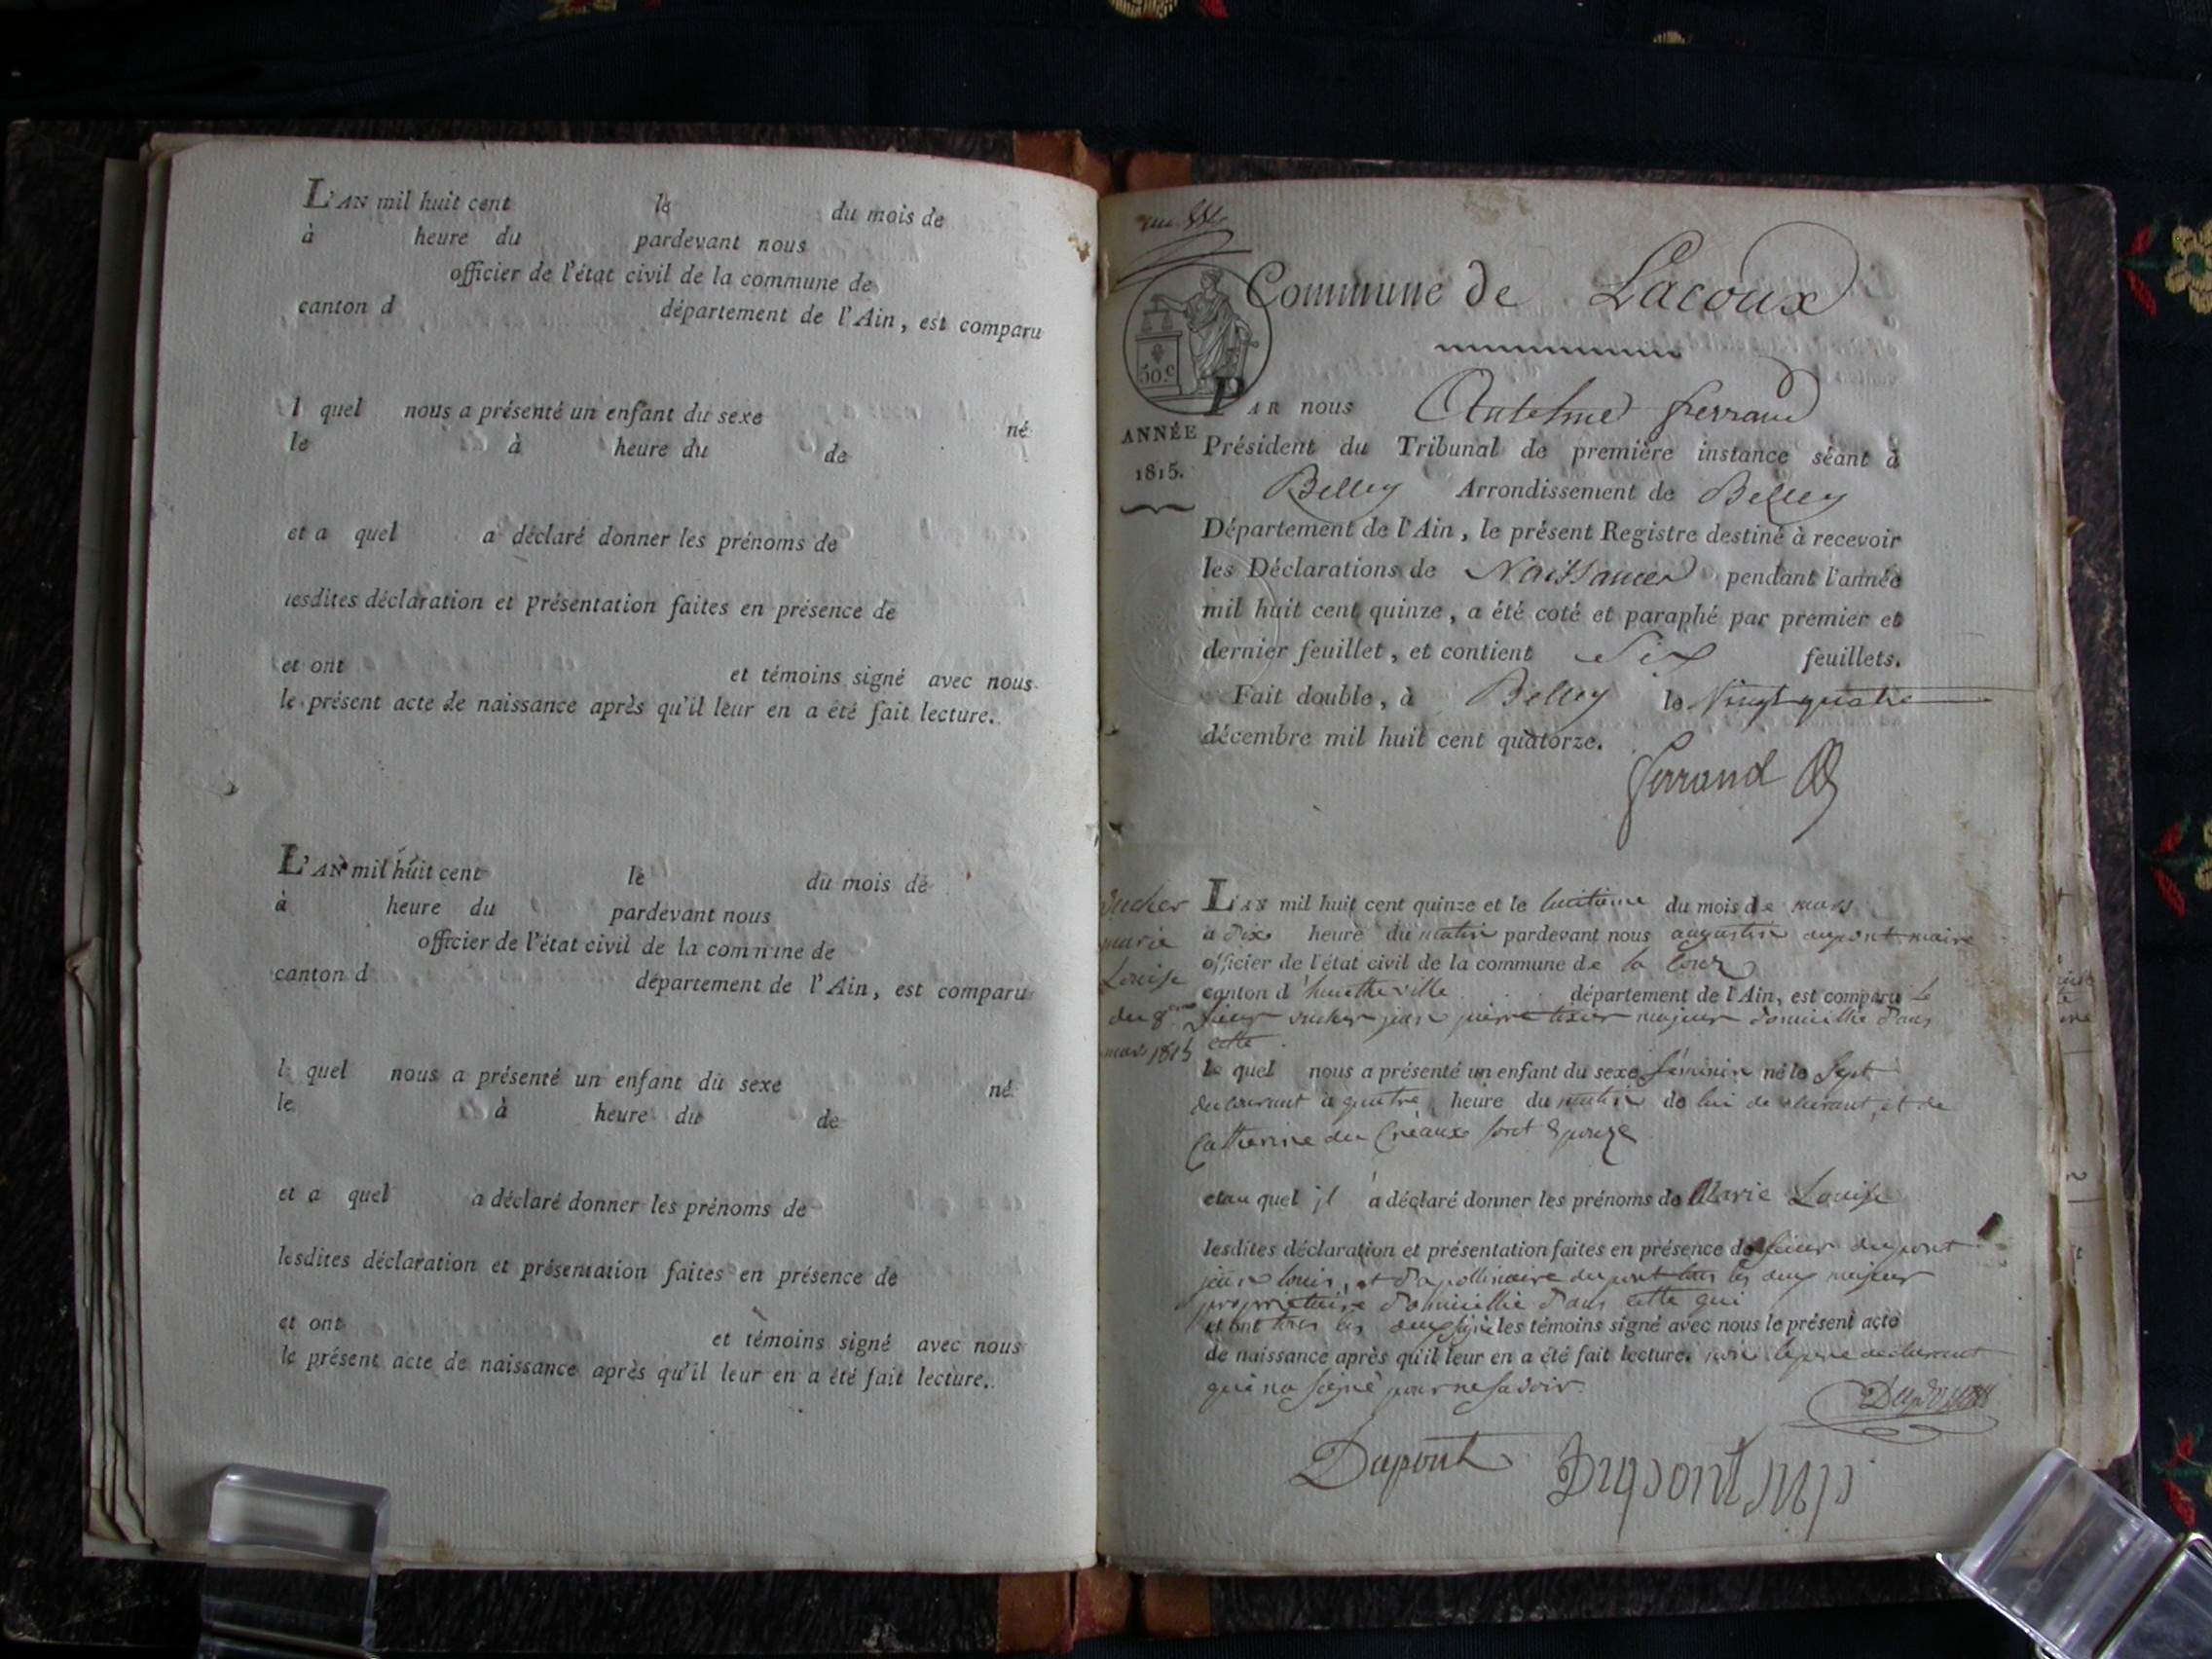 L'AN mil huit cent le du mois de
à heure du pardevant nous
officier de l'état civil de la commune de
canton d département de l'Ain, est comparu
l quel nous a présenté un enfant du sexe né
le à heure du de
et a quel a déclaré donner les prénoms de
lesdites déclaration et présentation faites en présence de
et ont et témoins signé avec nous
le présent acte de naissance après qu'il leur en a été fait lecture.
L'AN mil huit cent le du mois de
à heure du pardevant nous
officier de l'état civil de la commune de
canton d département de l'Ain, est comparu
l quel nous a présenté un enfant du sexe né
le à heure du de
et a quel a déclaré donner les prénoms de
lesdites déclaration et présentation faites en présence de
et ont et témoins signé avec nous
le présent acte de naissance après qu'il leur en a été fait lecture.
Commune de Lacoux
50.c
ANNÉE
1815.
PAR nous Antelme ferrand
Président du Tribunal de première instance séant à
Belley Arrondissement de Belley
Département de l'Ain, le présent Registre destiné à recevoir
les Déclarations de Naissances pendant l'année
mil huit cent quinze, a été coté et paraphé par premier et
dernier feuillet, et contient Six feuillets.
Fait double, à Belley le Vingt quatre
décembre mil huit cent quatorze.
ferrand
vucher
marie
Louise
du 8me
mars 1815
L'AN mil huit cent quinze et le huitieme du mois de mars
a dix heure du matin pardevant nous augustin dupont maire
officier de l'état civil de la commune de la Coux
canton d'hauteville département de l'Ain, est comparu le
sieur vucher jean pierre majeur domicillié dans
cette
le quel nous a présenté un enfant du sexe féminin né le sept
du courant a quatre heure du matin de lui declarant, et de
Catherine du Creaux son Epouze
et au quel jl a déclaré donner les prénoms de Marie Louise
lesdites déclaration et présentation faites en présence de sieur dupont
jean louis, et d'apollinaire dupont tous les deux majeur
proprietaire domicillié dans cette qui
et ont tous les deux signé les témoins signé avec nous le présent acte
de naissance après qu'il leur en a été fait lecture. non le pere declarant
qui na signé pour ne savoir
Dupont
Dupont Dupont